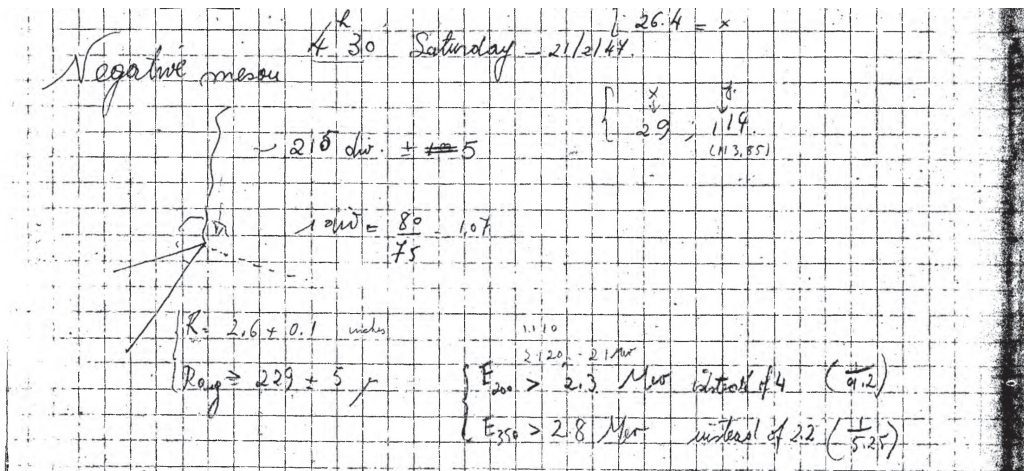 { 26.4 = x
4h 30 Saturday - 21/2/47.
Negative meson
{ x y
29 , 114
(113,85)
~ 215 div. ± 5
1 div = 80/75 = 1.07
{ R = 2.6 ± 0.1 inches
1.110
2.120 - 21 Mev
≥ 229 ± 5 μ
{ E200 > 2.3 Mev instead of 4
E350 > 2.8 Mev instead of 2.2 (1/5.25)